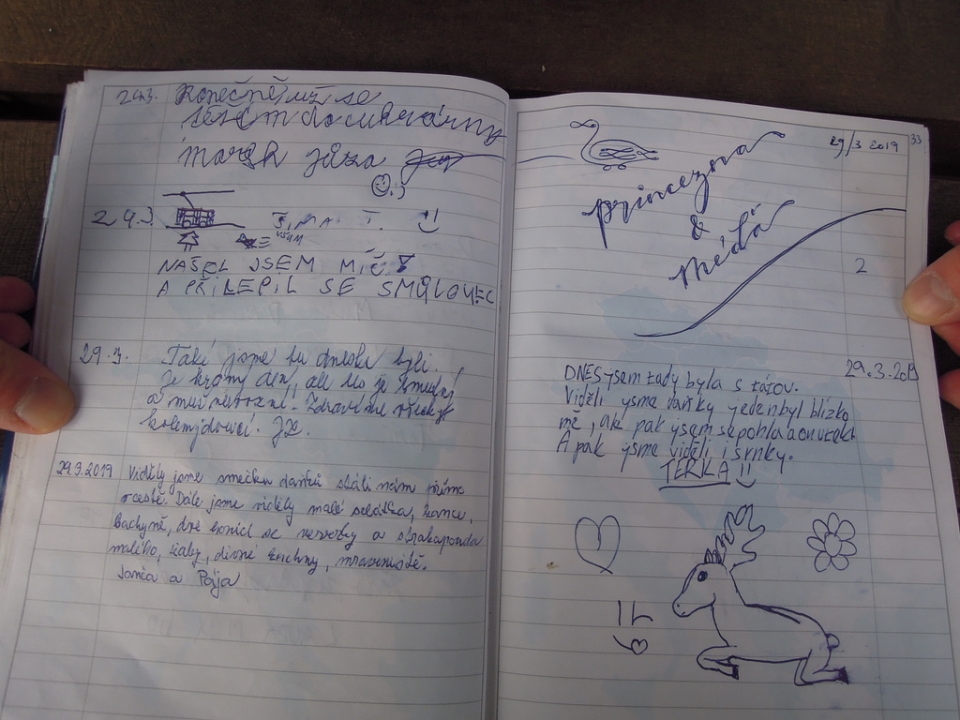 24.3. Konečně už se
těším do cukrárny
24.3
ŠÍMA T.
NAŠEL JSEM MÍČ
A PŘILEPIL SE SMŮLOVEC
29.3. Také jsme tu dneska byli.
Je krásný den, ale
Zdravíme všechny
kolemjdoucí. JX.
29.3.2019 Viděly jsme smečku daňků stáli nám přímo
v cestě. Dále jsme viděly malé seláťka, kance,
bachyně, dvě honící se a strakapouda
malého, žaby, divné mraveniště.
Janča a Pája
29/3 2019 33
princezna
&
Méďa
2
29.3.2019
DNES ysem tady byla s tátou.
Viděli ysme daňky yeden byl blízko
mě, ale pak ysem se pohla a on utekl
A pak ysme viděli i srnky.
TERKA